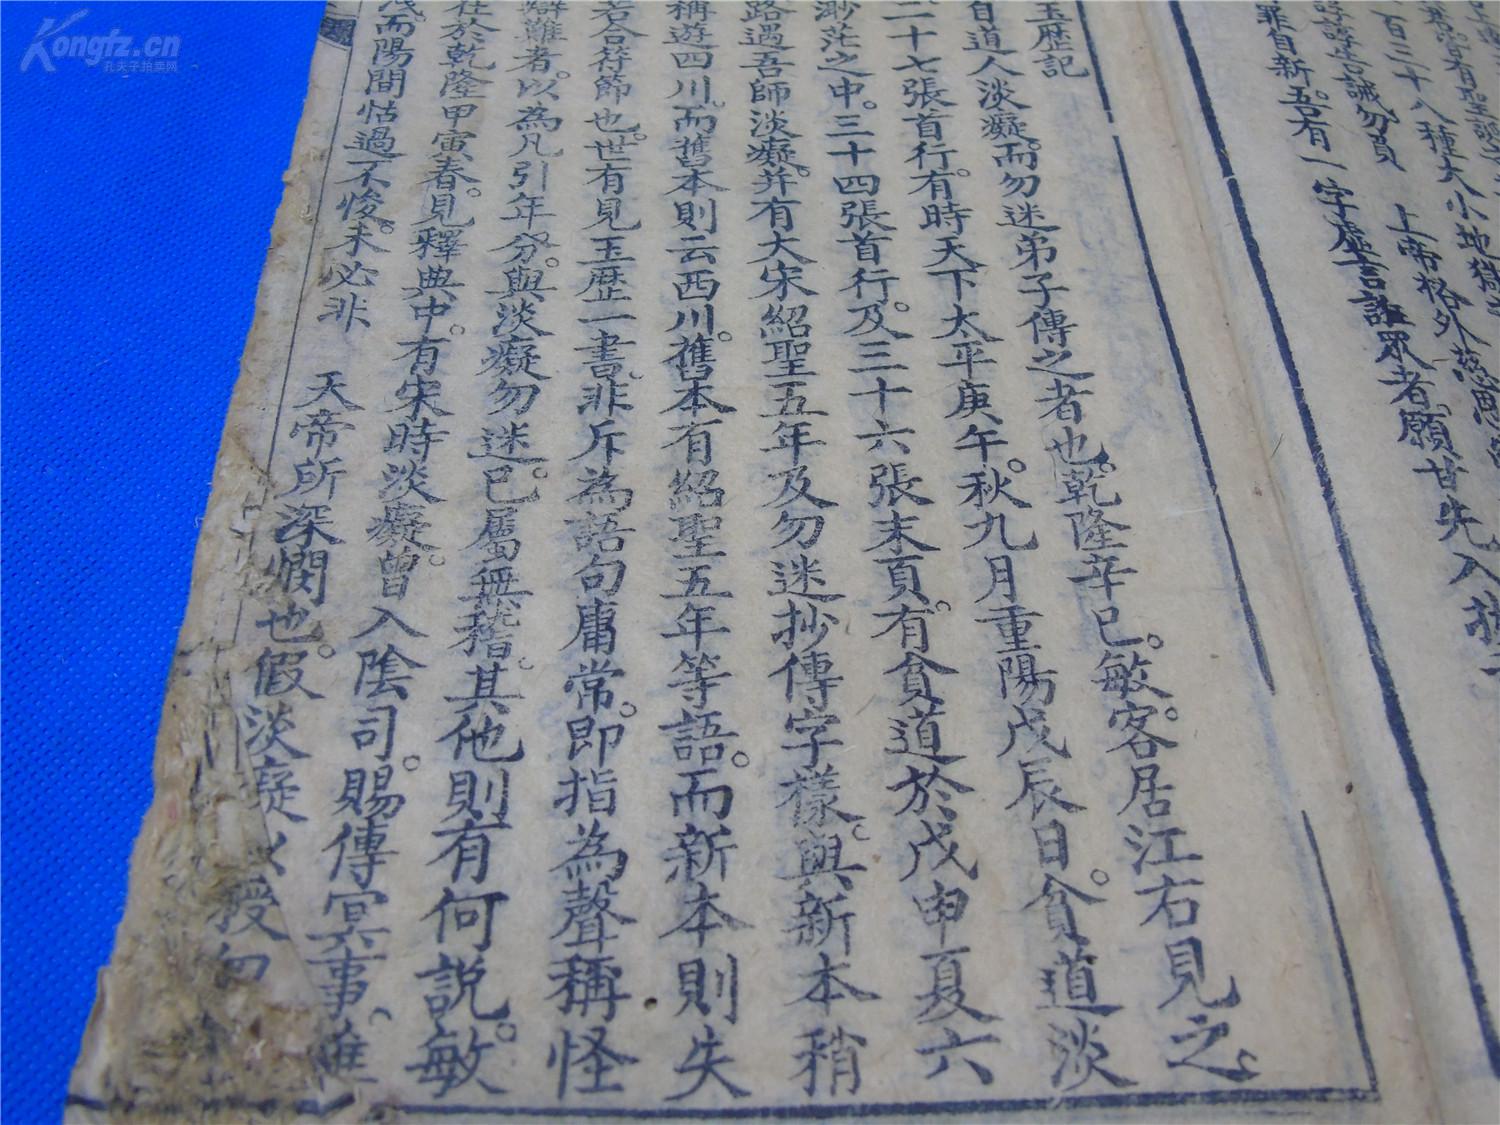 罪自新。吾有一字虛言誑眾者。願甘先入
百三十八種大小地獄
上帝格外慈
玉歷記
自道人淡癡。而勿迷弟子傳之者也。乾隆辛巳。敏客居江右見之。
二十七張首行。有時天下太平庚午。秋九月重陽戊辰日。貧道淡
渺茫之中。三十四張首行。及三十六張末頁。有貧道於戊申夏六
路過吾師淡癡。并有大宋紹聖五年及勿迷抄傳字樣。與新本稍
稱遊四川。而舊本則云西川。舊本有紹聖五年等語。而新本則失
若合符節也。世有見玉歷一書。非斥為語句庸常。即指為聲稱怪
辯難者。以為凡引年分。與淡癡勿迷。已屬無稽。其他則有何說。敏
在於乾隆甲寅春。見釋典中。有宋時淡癡。曾入陰司。賜傳冥事。雖
而陽間怙過不悛。未必非 天帝所深憫也。假淡癡以授勿
Kongfz.cn
孔夫子拍卖网